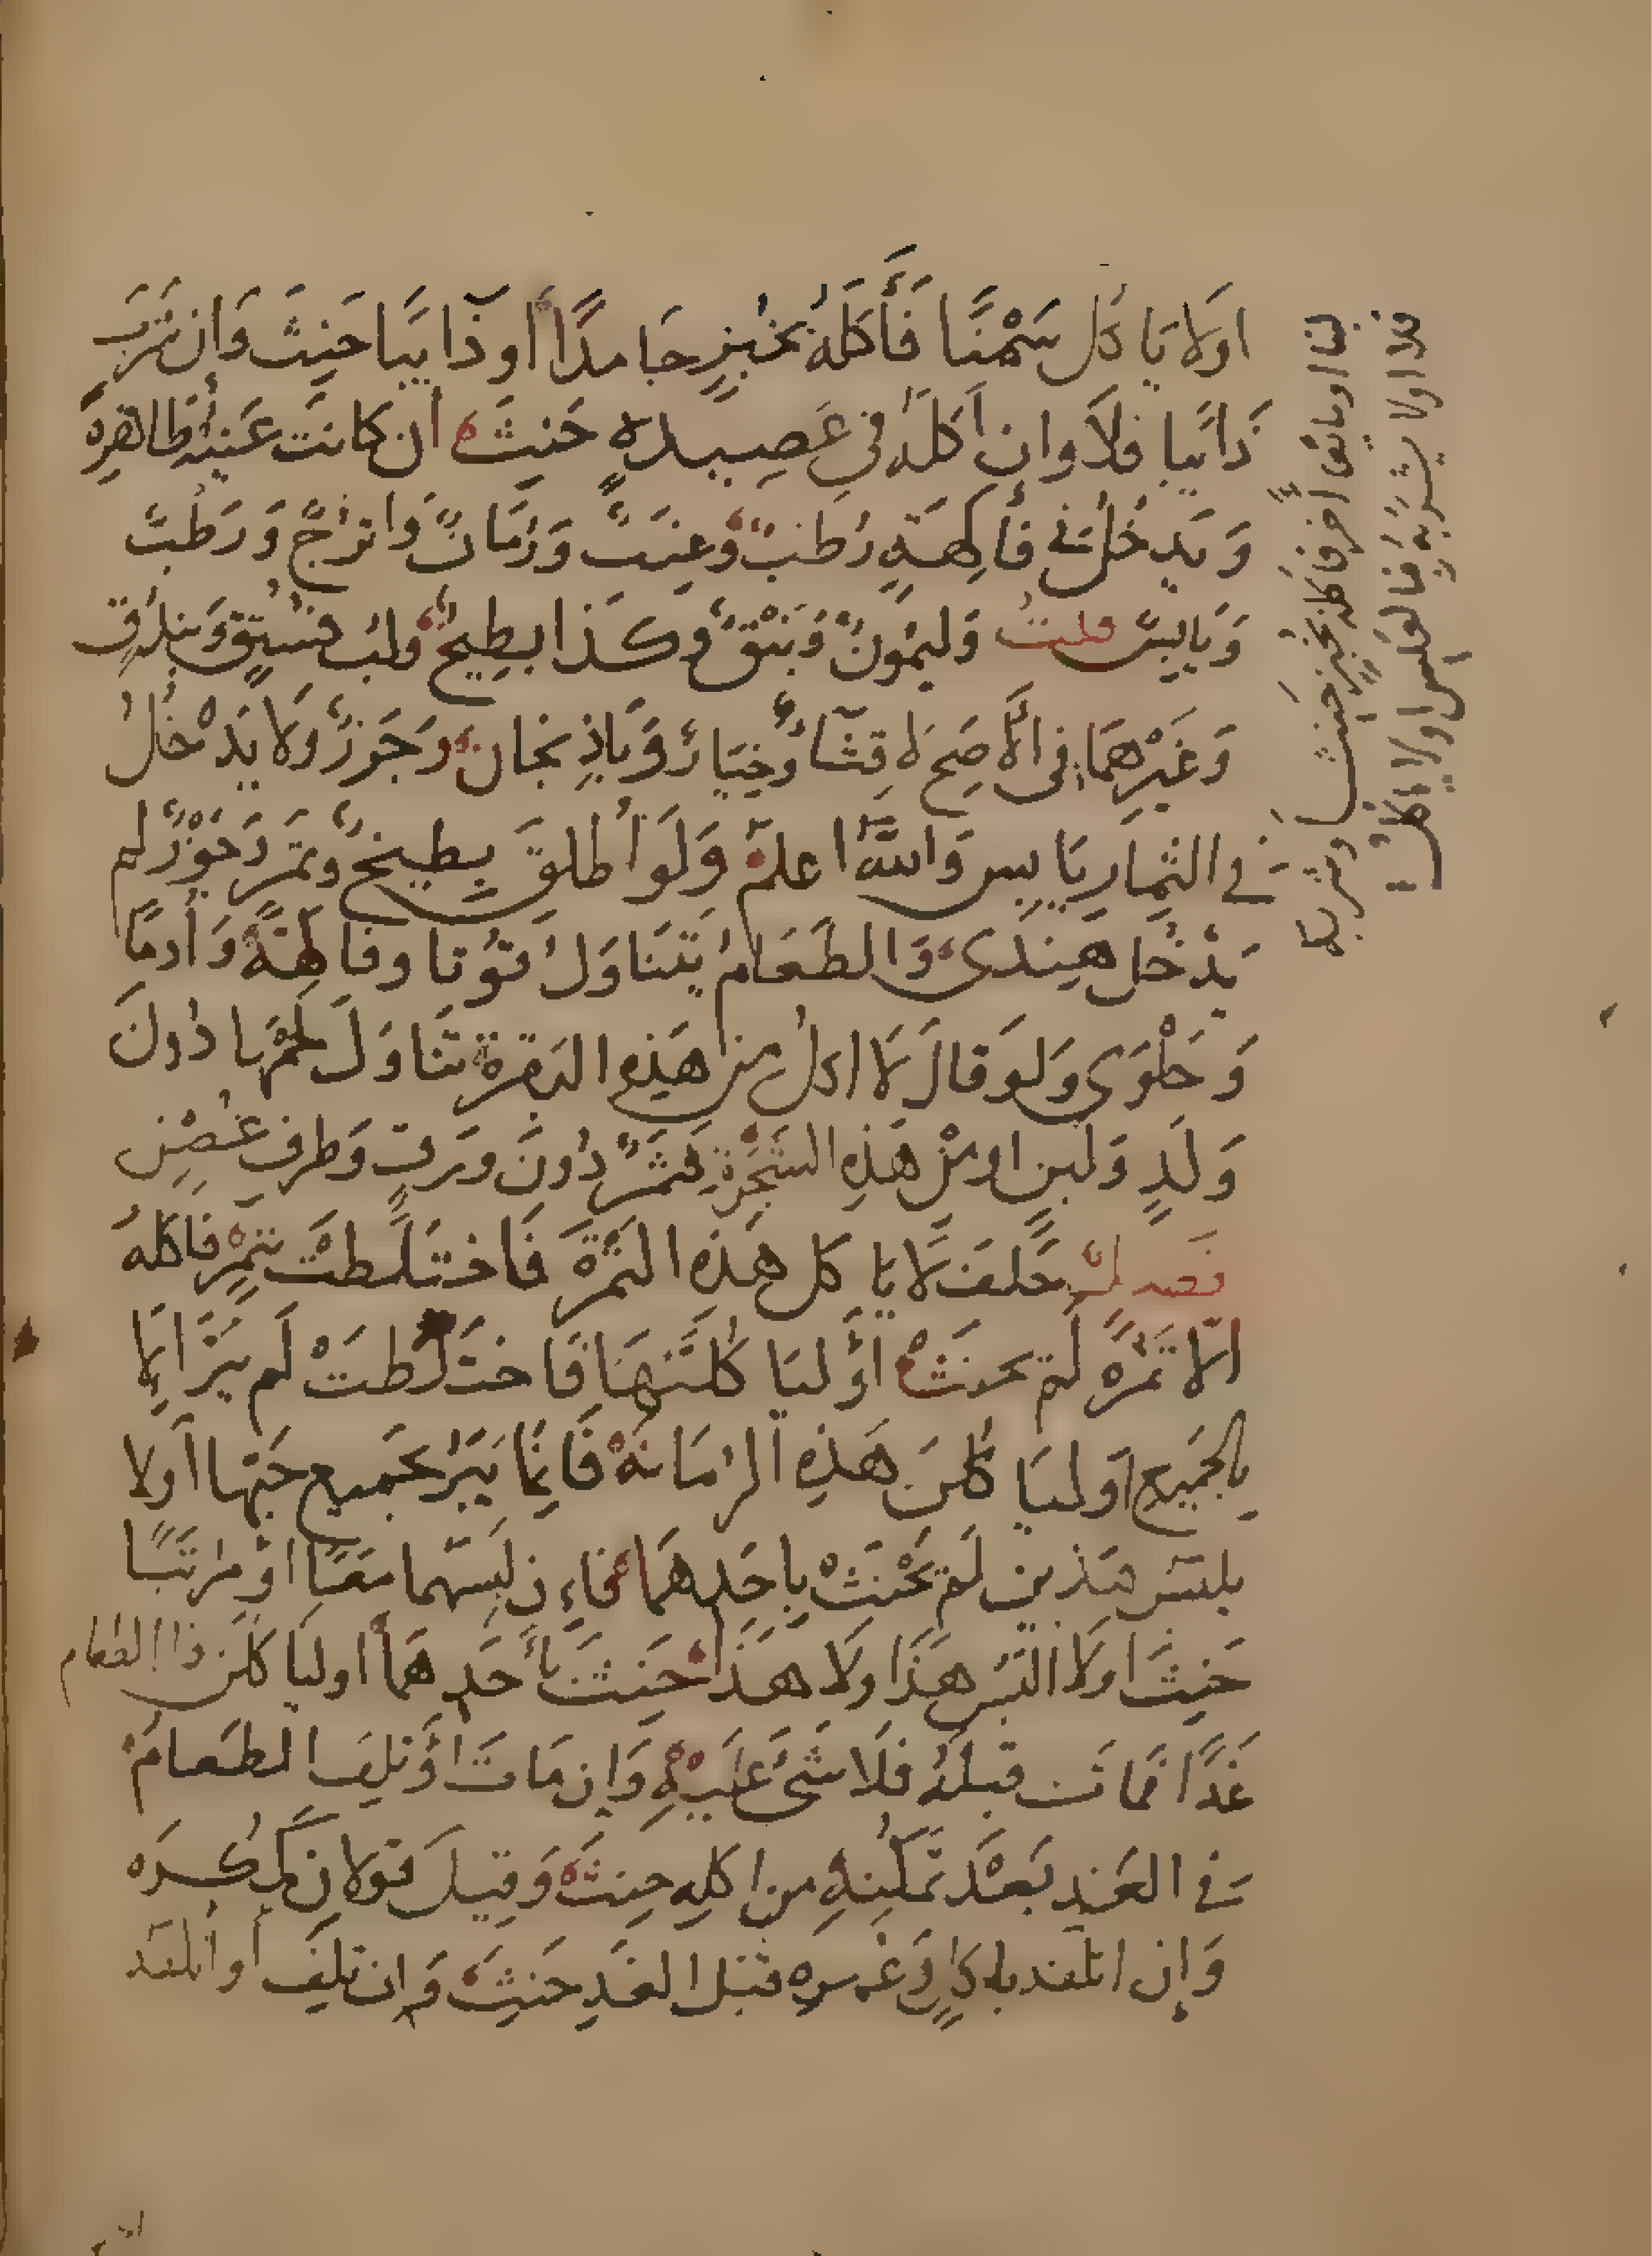 اولا يا كل سَمْنًا فَأَكَلهُ بخُبزٍ جَا مدًا أو ذا يبًا حَنِثَ وَان شَرِبَ
ذَائبًا فلاَ وان اَكلَهُ في عَصِيدةٍ حَنِثَ أن كانت عَينُهُ ظاهِرةً
وَ يَدخُلُ في فَاكِهَةٍ رُطَبٌ وَعِنَبٌ وَرُمَانٌ وا ترُجٌّ وَ رَطْبٌ
وَيَابِسٌ قلتُ وَليْمُونٌ وَنَبْقٌ وكَذا بطِيخٌ ولُب فُستُقٍ وَبُندُقٍ
وَغَيْرِهمَا في الأَصَحِّ لا قِثَّاءٌ وَخِيَارٌ وَبَاذِنجانٌ وَجَزَرٌ وَلا يَدْخُلُ
في الثِمَارِ يَابِس وَاللّهُ اعلمُ وَلَو أُطلقَ بِطيخٌ وتمَرٌ وَجَوْزٌ لم
يَدْخُل هِندىٌ وَالطَعَامُ يَتَنَاوَلُ قُوتا وفاكِهَةً وَأُدمًا
وَحَلْوَى وَلو قالَ لاَ اكلُ مِن هَذِهِ البَقرة تَنَاوَلَ لحْمَهَا دُونَ
وَلَدٍ وَلبنٍ اومِنْ هَذِهِ الشَجَرَةِ فَثَمَرٌ دُونَ وَرَقٍ وَطرفِ غُصْنٍ
فَصْلٌ حَلفَ لاَ يا كل هَذِه التَمْرَةَ فَاختلَطتْ بتَمْرٍ فاكلهُ
الا تمرَةً لَم يحنثْ اَوْ ليَا كلَنَّهَا فَاختَلَطتْ لَم يَبَرَّ الا
بِالجَميعِ اَوليَا كُلَن هَذِهِ الرُمَانَةَ فَانِمَا يَبَرُّ بجَميع حَبِّها اَولا
يلبَسُ هَذينِ لَم يَحْنَثْ بِاحَدِهمَا فَإِن لَبِسَهما مَعًا اَوْ مرَتبًا
حَنِثَ اَولاَ البَسُ هَذَا ولاَ هذَا حَنِثَ بأَحَدِهمَا اوليَا كلَن ذا الطعام
غَدًا فمَاتَ قبلَهُ فلاَ شَىءَ عَلَيْهِ وَإن مَاتَ اَوْ تلِفَ الطعَامُ
فى الغَدِ بَعْدَ تَمكُنِهِ من اكلِه حَنِثَ وَقِيلَ قولان كمُكرَه
وَإن اتلفه باكلٍ وَغَيره قبْل الغَدِ حَنِثَ وَان تلِفَ أو اتلفه
بنا اوباتفا آخر فاكله بخبزٍ حَنِث وشربها
فلا اولا يشربُه فبالعكس اولا ياكل